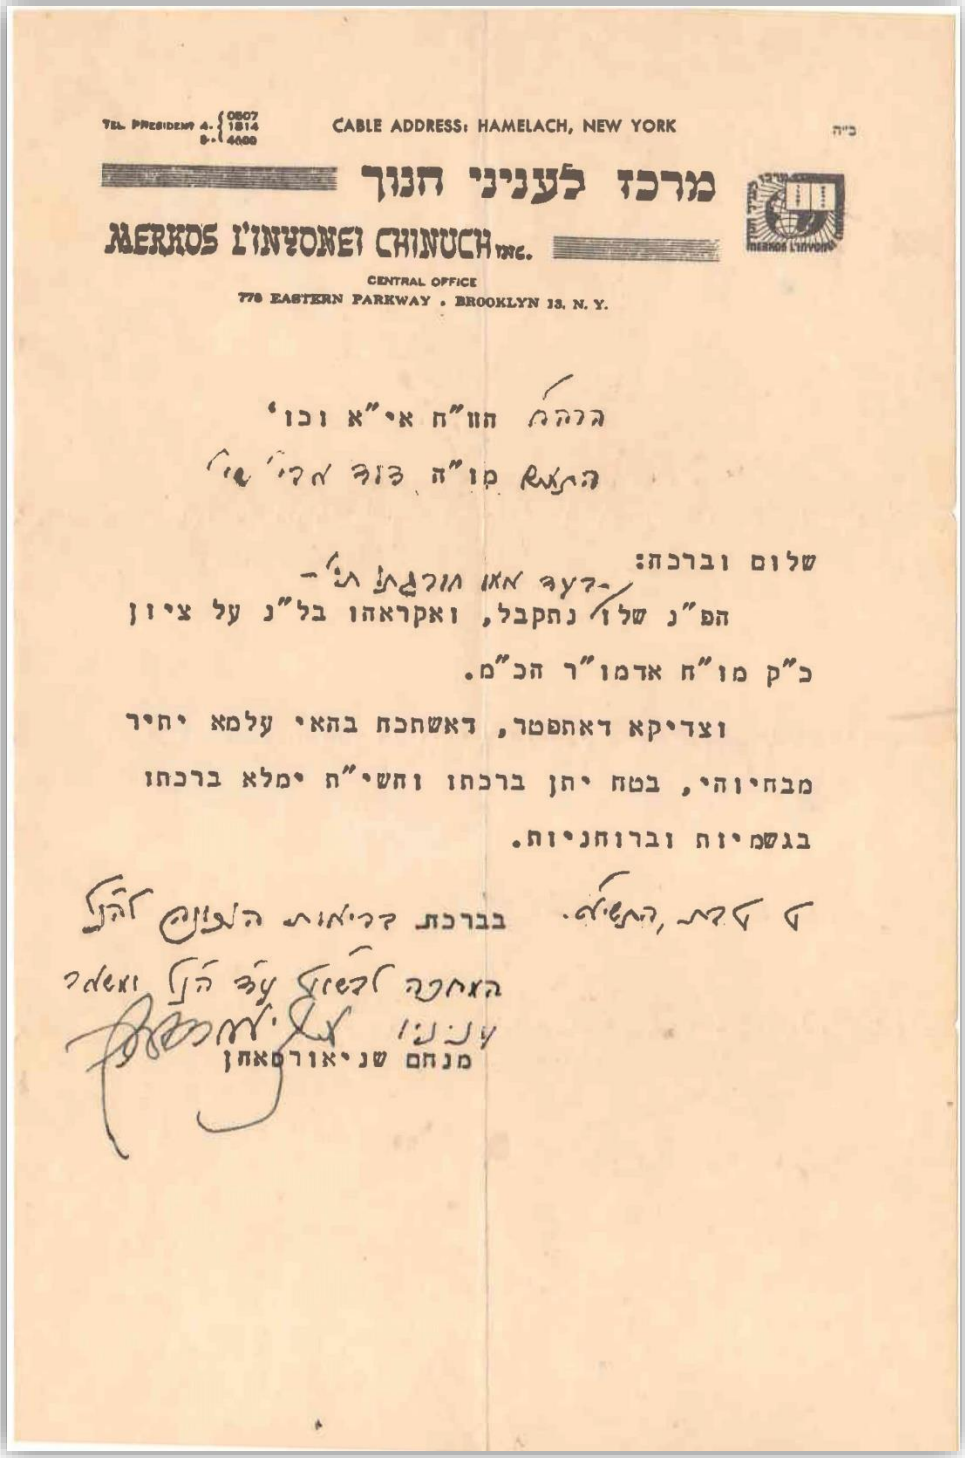 TEL. PRESIDENT 4- { 0507
1814
3- 4600
CABLE ADDRESS: HAMELACH, NEW YORK
ב״ה
מרכז לעניני חנוך
MERKOS L'INYONEI CHINUCH INC.
MERKOS L'INYONEI
CENTRAL OFFICE
770 EASTERN PARKWAY . BROOKLYN 13, N. Y.
הוו״ח אי״א וכו'
מו״ה דוד
שלום וברכה:
-בעד
הפ״נ שלו נתקבל, ואקראהו בל״נ על ציון
כ״ק מו״ח אדמו״ר הכ״מ.
וצדיקא דאתפטר, דאשתכח בהאי עלמא יתיר
מבחיוהי, בטח יתן ברכתו והשי״ת ימלא ברכתו
בגשמיות וברוחניות.
ט טבת, התשי״א.
בברכת בריאות הנכונה להנ״ל
המחכה לבשו״ט ע״ד הנ״ל ומשאר
עניניו
מנחם שניאורסאהן